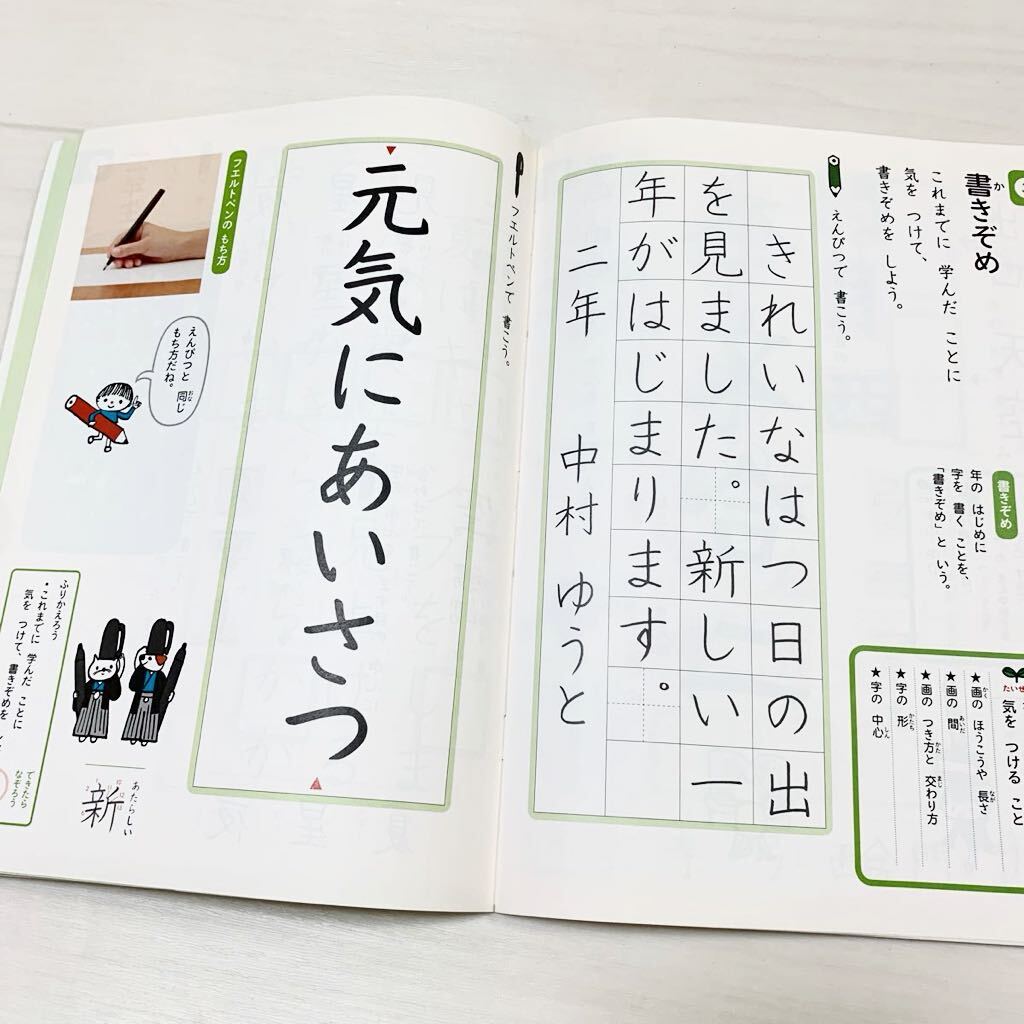 書きぞめ
か
これまでに 学んだ ことに
気を つけて、
書きぞめを しよう。
書きぞめ
年の はじめに
字を 書く ことを、
「書きぞめ」と いう。
たいせ
気を つける こと
★画の ほうこうや 長さ
かく
なが
★画の 間
あいだ
★画の つき方と 交わり方
かた
まじ
★字の 形
かたち
★字の 中心
しん
えんぴつで 書こう。
きれいなはつ日の出
を見ました。新しい一
年がはじまります。
二年 中村 ゆうと
フエルトペンで 書こう。
元気にあいさつ
フエルトペンの もち方
えんぴつと 同じ
おな
もち方だね。
あたらしい
新
ふりかえろう
・これまでに 学んだ ことに
気を つけて、書きぞめを
できたら
なぞろう